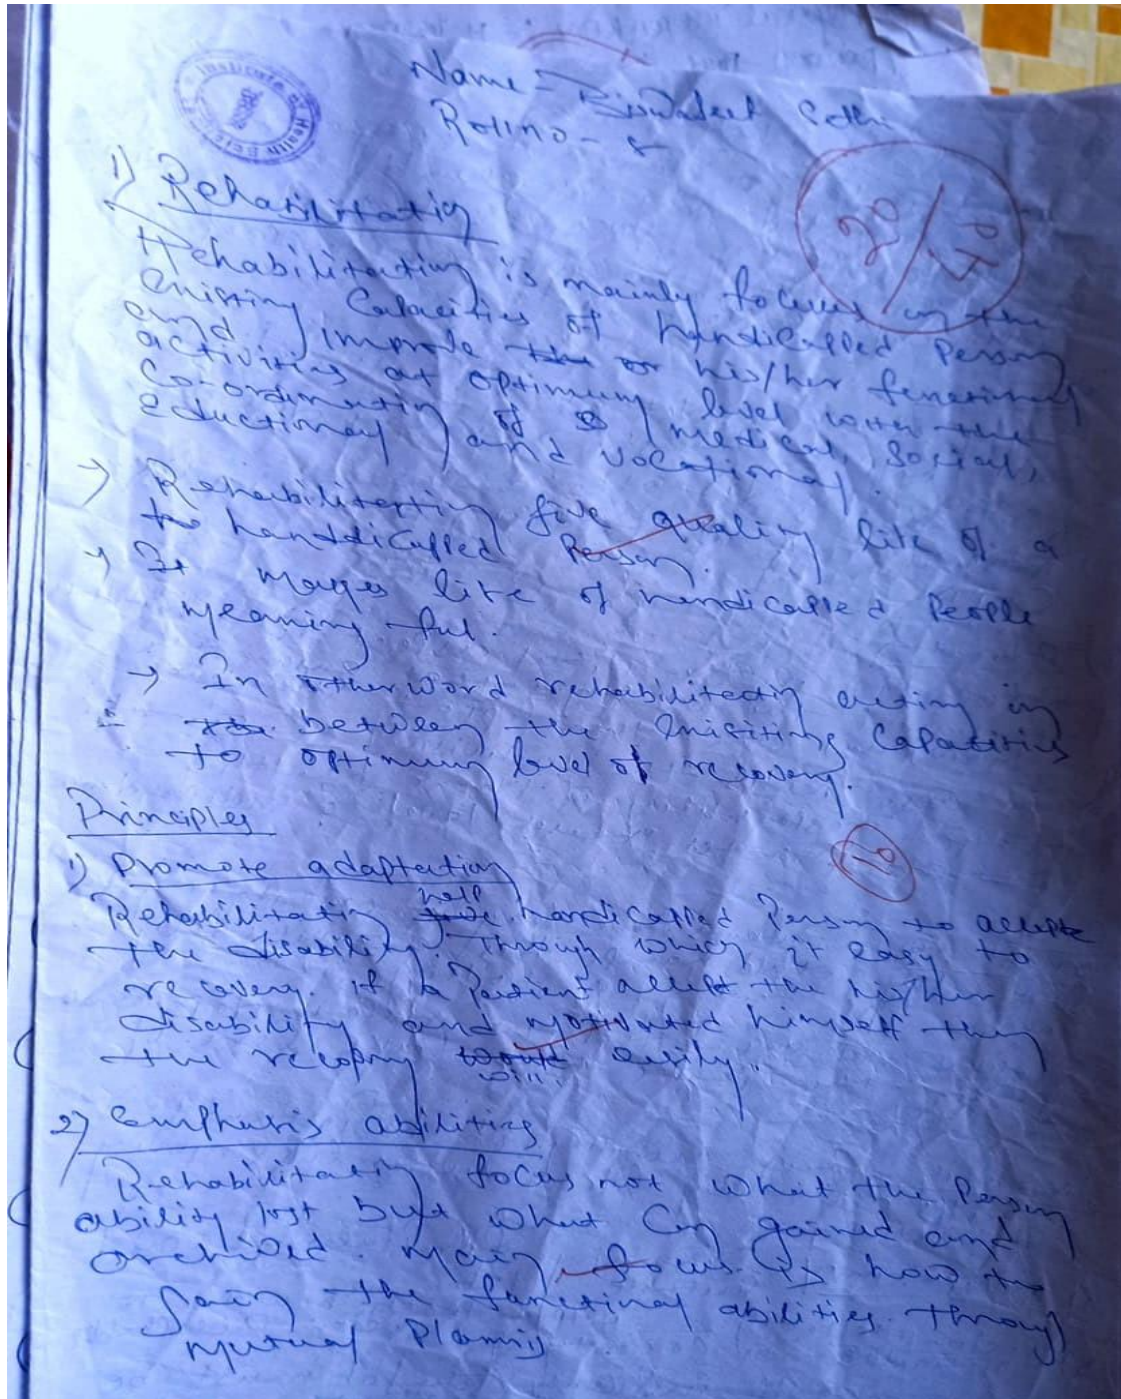 Institute of Health Scie
Name -
Roll no -
20/
1) Rehabilitatin
Rehabilitating is mainly focuses on the
enisting Calacities of handicalled Person
and improve his/her functional
activities at optimum level with the
co-ordinatin of medical, social,
eductional and vocational.
→ Rehabilitatin give quality life of a
to handdicalled Person.
→ It mayes life of handicalled People
meaning ful.
→ In otherword rehabilitatin acting in
between the enisiting Capacities
to optimum level of recovery.
Principles
10
1) Promote adaptation
Rehabilitatin help handicalled Person to
the disability. Through which it easy to
recovery. if a Patient the his/her
disability and motivated himself then
the will easily.
2) emphasis abilities
Rehabilitatin focus not what the Person
ability lost but what Can gained and
archived. main focus is how to
gain the functinal abilities. Through
mutual Planning